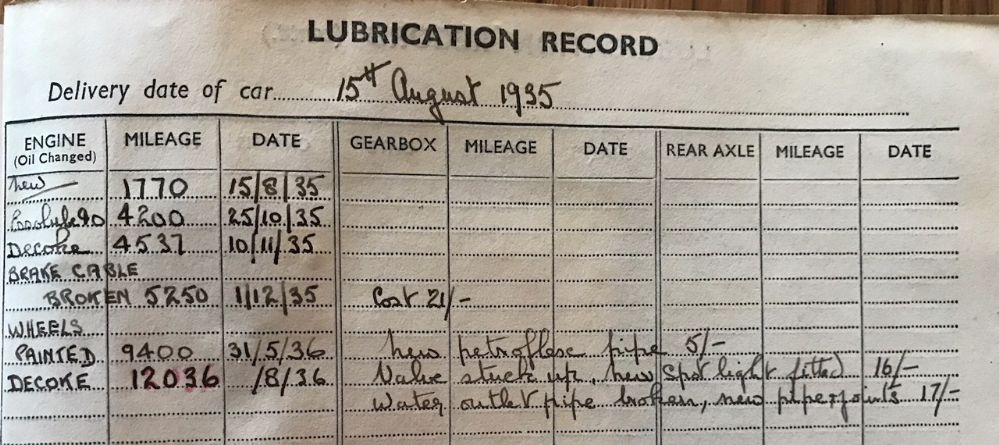 LUBRICATION RECORD
Delivery date of car 15th August 1935
ENGINE (Oil Changed) MILEAGE DATE GEARBOX MILEAGE DATE REAR AXLE MILEAGE DATE
New 1770 15/8/35
Essolube 40 4200 25/10/35
Decoke 4537 10/11/35
BRAKE CABLE
BROKEN 5250 1/12/35 Cost 21/-
WHEELS
PAINTED 9400 31/5/36 New petroflex pipe 5/-
DECOKE 12036 /8/36 Valve stuck up, new Spot light fitted 16/-
Water outlet pipe broken, new pipe & joints 17/-